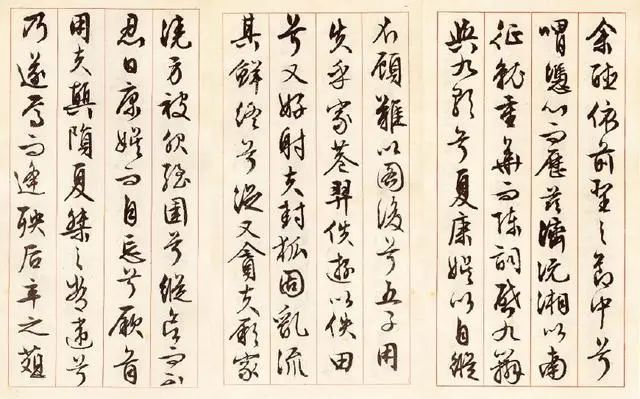 余聽依前聖之節中兮
喟憑心而歷茲濟沅湘以南
征就重華而陳詞啓九辯
與九歌兮夏康娛以自縱
不顧難以圖後兮五子用
失乎家巷羿淫遊以佚田
兮又好射夫封狐固亂流
其鮮終兮浞又貪夫厥家
澆身被服強圉兮縱欲而不
忍日康娛而自忘兮厥首
用夫顛隕夏桀之常違兮
乃遂焉而逢殃后辛之菹